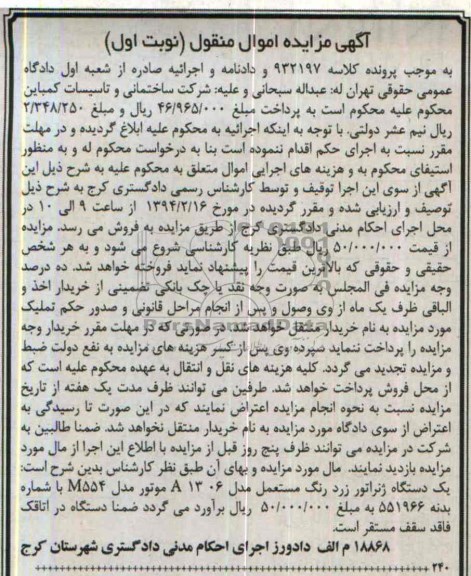 آگهی مزایده اموال منقول (نوبت اول)
به موجب پرونده کلاسه ۹۳۲۱۹۷ و دادنامه و اجرائیه صادره از شعبه اول دادگاه
عمومی حقوقی تهران له: عبداله سبحانی و علیه: شرکت ساختمانی و تاسیسات کمباین
محکوم علیه محکوم است به پرداخت مبلغ ۴۶/۹۶۵/۰۰۰ ریال و مبلغ ۲/۳۴۸/۲۵۰
ریال نیم عشر دولتی. با توجه به اینکه اجرائیه به محکوم علیه ابلاغ گردیده و در مهلت
مقرر نسبت به اجرای حکم اقدام ننموده است بنا به درخواست محکوم له و به منظور
استیفای محکوم به و هزینه های اجرایی اموال متعلق به محکوم علیه به شرح ذیل این
آگهی از سوی این اجرا توقیف و توسط کارشناس رسمی دادگستری کرج به شرح ذیل
توصیف و ارزیابی شده و مقرر گردیده در مورخ ۱۳۹۴/۲/۱۶ از ساعت ۹ الی ۱۰ در
محل اجرای احکام مدنی دادگستری کرج از طریق مزایده به فروش می رسد. مزایده
از قیمت ۵۰/۰۰۰/۰۰۰ ریال طبق نظریه کارشناسی شروع می شود و به هر شخص
حقیقی و حقوقی که بالاترین قیمت را پیشنهاد نماید فروخته خواهد شد. ده درصد
وجه مزایده فی المجلس به صورت وجه نقد یا چک بانکی تضمینی از خریدار اخذ و
الباقی ظرف یک ماه از وی وصول و پس از انجام مراحل قانونی و صدور حکم تملیک
مورد مزایده به نام خریدار منتقل خواهد شد. در صورتی که در مهلت مقرر خریدار وجه
مزایده را پرداخت ننماید سپرده وی پس از کسر هزینه های مزایده به نفع دولت ضبط
و مزایده تجدید می گردد. کلیه هزینه های نقل و انتقال به عهده محکوم علیه است که
از محل فروش پرداخت خواهد شد. طرفین می توانند ظرف مدت یک هفته از تاریخ
مزایده نسبت به نحوه انجام مزایده اعتراض نمایند که در این صورت تا رسیدگی به
اعتراض از سوی دادگاه مورد مزایده به نام خریدار منتقل نخواهد شد. ضمنا طالبین به
شرکت در مزایده می توانند ظرف پنج روز قبل از مزایده با اطلاع این اجرا از مال مورد
مزایده بازدید نمایند. مال مورد مزایده و بهای آن طبق نظر کارشناس بدین شرح است:
یک دستگاه ژنراتور زرد رنگ مستعمل مدل A ۱۳۰۶ موتور مدل M۵۵۴ با شماره
بدنه ۵۵۱۹۶۶ به مبلغ ۵۰/۰۰۰/۰۰۰ ریال برآورد می گردد ضمنا دستگاه در اتاقک
فاقد سقف مستقر است.
۱۸۸۶۸ م الف دادورز اجرای احکام مدنی دادگستری شهرستان کرج
۲۴۰